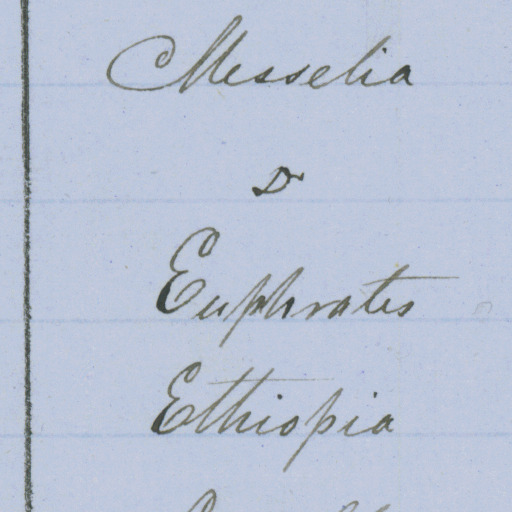 Messelia
Do
Euphrates
Ethiopia